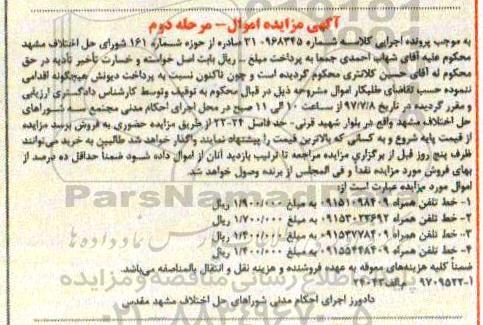 آگهی مزایده اموال – مرحله دوم
به موجب پرونده اجرایی کلاسه شماره ۹۶۸۳۴۵ ۲۱ صادره از حوزه شماره ۱۶۱ شورای حل اختلاف مشهد
محکوم علیه آقای شهاب احمدی جمعا به پرداخت مبلغ ۰ ریال بابت اصل خواسته و خسارت تأخیر تأدیه در حق
محکوم له آقای حسین کلانتری محکوم گردیده است و چون تاکنون نسبت به پرداخت دیونش هیچگونه اقدامی
ننموده حسب تقاضای طلبکار اموال مشروحه ذیل در قبال محکوم به توقیف وتوسط کارشناس دادگستری ارزیابی
و مقرر گردیده در تاریخ ۹۷/۷/۸ از ساعت ۱۰ الی ۱۱ صبح در محل اجرای احکام مدنی مجتمع سه شوراهای
حل اختلاف مشهد واقع در بلوار شهید قرنی- حد فاصل ۲۴-۲۲ از طریق مزایده حضوری به فروش برسد مزایده
از قیمت پایه شروع و به کسانی که بالاترین قیمت را پیشنهاد نمایند واگذار خواهد شد طالبین به خرید می‌توانند
ظرف پنج روز قبل از برگزاری مزایده مراجعه تا ترتیب بازدید آنان از اموال داده شود ضمناً حداقل ده درصد از
بهای فروش مورد مزایده نقداً و فی المجلس از برنده وصول خواهد شد.
اموال مورد مزایده عبارت است از:
۱- خط تلفن همراه ۰۹۱۵۱۰۹۸۴۰۹ به مبلغ ۱/۹۰۰/۰۰۰ ریال
۲- خط تلفن همراه ۰۹۱۵۳۰۳۲۶۹۲ به مبلغ ۱/۷۰۰/۰۰۰ ریال
۳- خط تلفن همراه ۰۹۱۵۳۷۷۸۴۰۹ به مبلغ ۱/۴۰۰/۰۰۰ ریال
۴- خط تلفن همراه ۰۹۱۵۵۴۴۸۴۰۹ به مبلغ ۱/۴۰۰/۰۰۰ ریال
ضمناً کلیه هزینه‌های معوقه به عهده فروشنده و هزینه نقل و انتقال بالمناصفه می‌باشد.
۹۷۰۹۵۲۲-۱ م.الف ۲۴۰۴۳
دادورز اجرای احکام مدنی شوراهای حل اختلاف مشهد مقدس
ParsNamadData
پایگاه اطلاع رسانی مناقصه و مزایده
۰۲۱-۸۸۳۴۹۶۷۰-۵